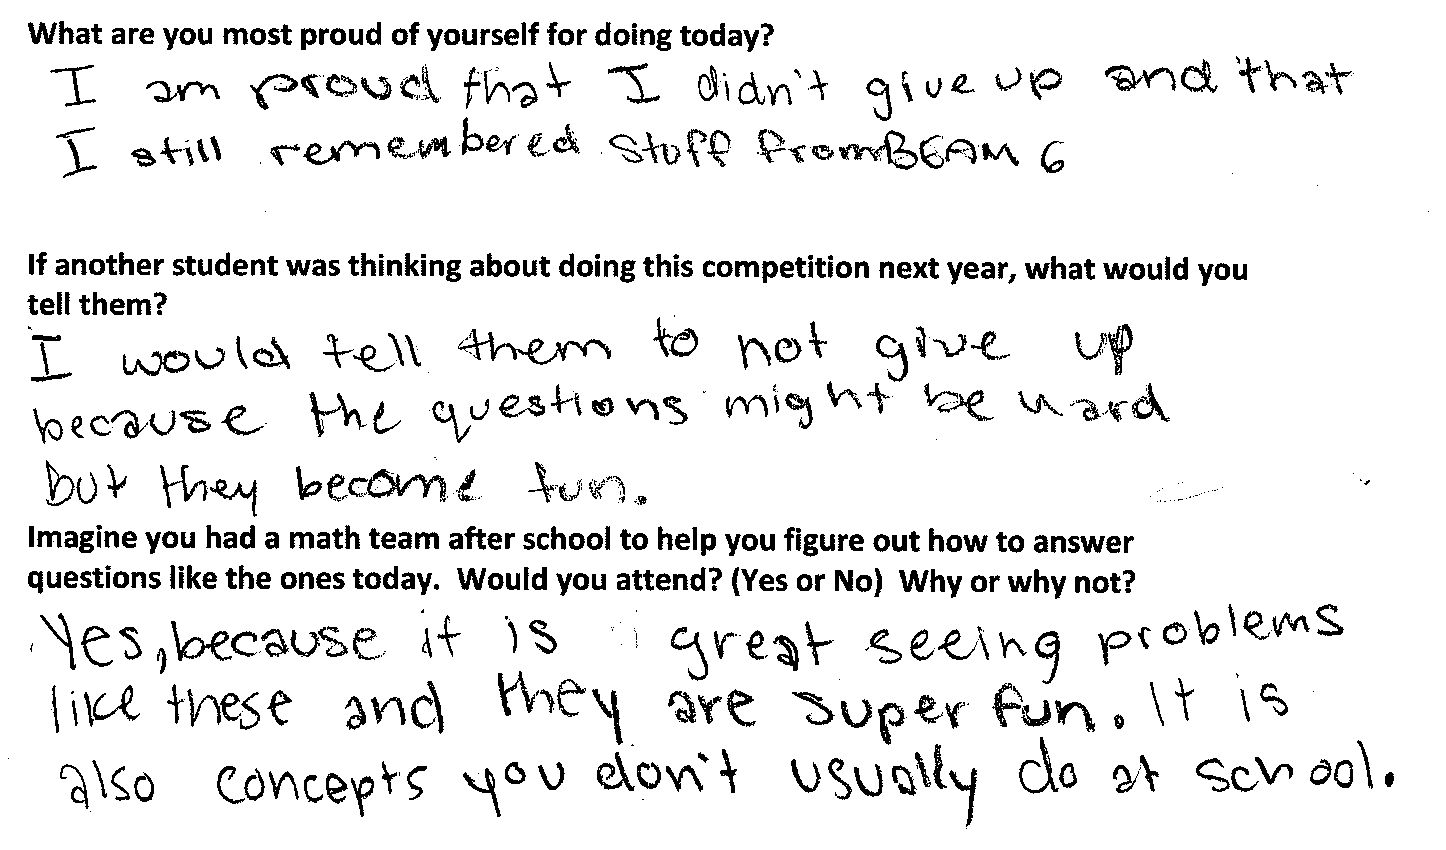 What are you most proud of yourself for doing today?
I am proud that I didn't give up and that
I still remembered stuff from BEAM 6
If another student was thinking about doing this competition next year, what would you
tell them?
I would tell them to not give up
because the questions might be hard
but they become fun.
Imagine you had a math team after school to help you figure out how to answer
questions like the ones today.  Would you attend? (Yes or No)  Why or why not?
Yes, because it is great seeing problems
like these and they are super fun. It is
also concepts you don't usually do at school.